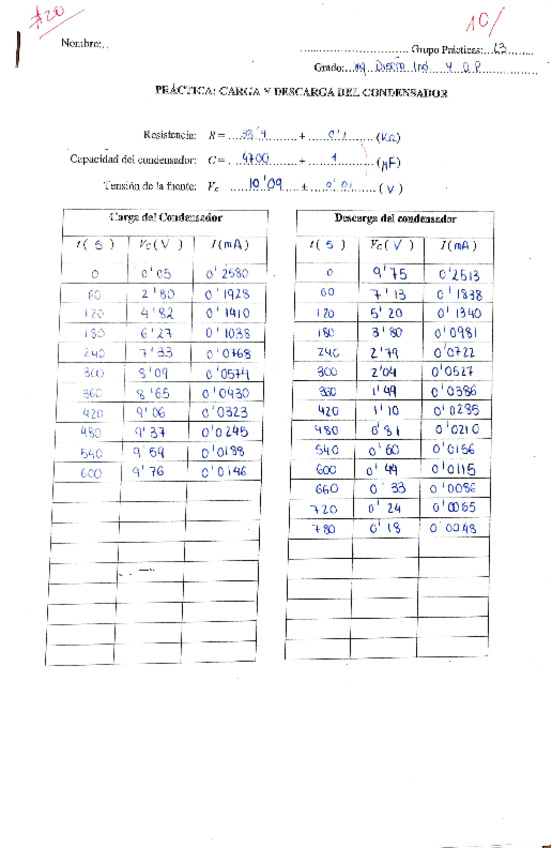 #20
10/
Nombre:..
Grupo Prácticas:...L3
Grado:...Ing Diseño Ind Y D.P
PRÁCTICA: CARGA Y DESCARGA DEL CONDENSADOR
Resistencia: R = ...38'4 ... + ...0'1... (KΩ)
Capacidad del condensador: C = ...4700 ... + ...1... (μF)
Tensión de la fuente: Vc ...10'09 ... ± ...0'01... (V)
Carga del Condensador
t( S ) Vc( V ) I(mA)
0 0'05 0'2580
60 2'80 0'1928
120 4'82 0'1410
180 6'27 0'1038
240 7'33 0'0768
300 8'09 0'0574
360 8'65 0'0430
420 9'06 0'0323
480 9'37 0'0245
540 9'59 0'0188
600 9'76 0'0146
Descarga del condensador
t( S ) Vc( V ) I(mA)
0 9'75 0'2513
60 7'13 0'1838
120 5'20 0'1340
180 3'80 0'0981
240 2'79 0'0722
300 2'04 0'0527
360 1'49 0'0386
420 1'10 0'0285
480 0'81 0'0210
540 0'60 0'0156
600 0'44 0'0115
660 0'33 0'0086
720 0'24 0'0065
780 0'18 0'0048